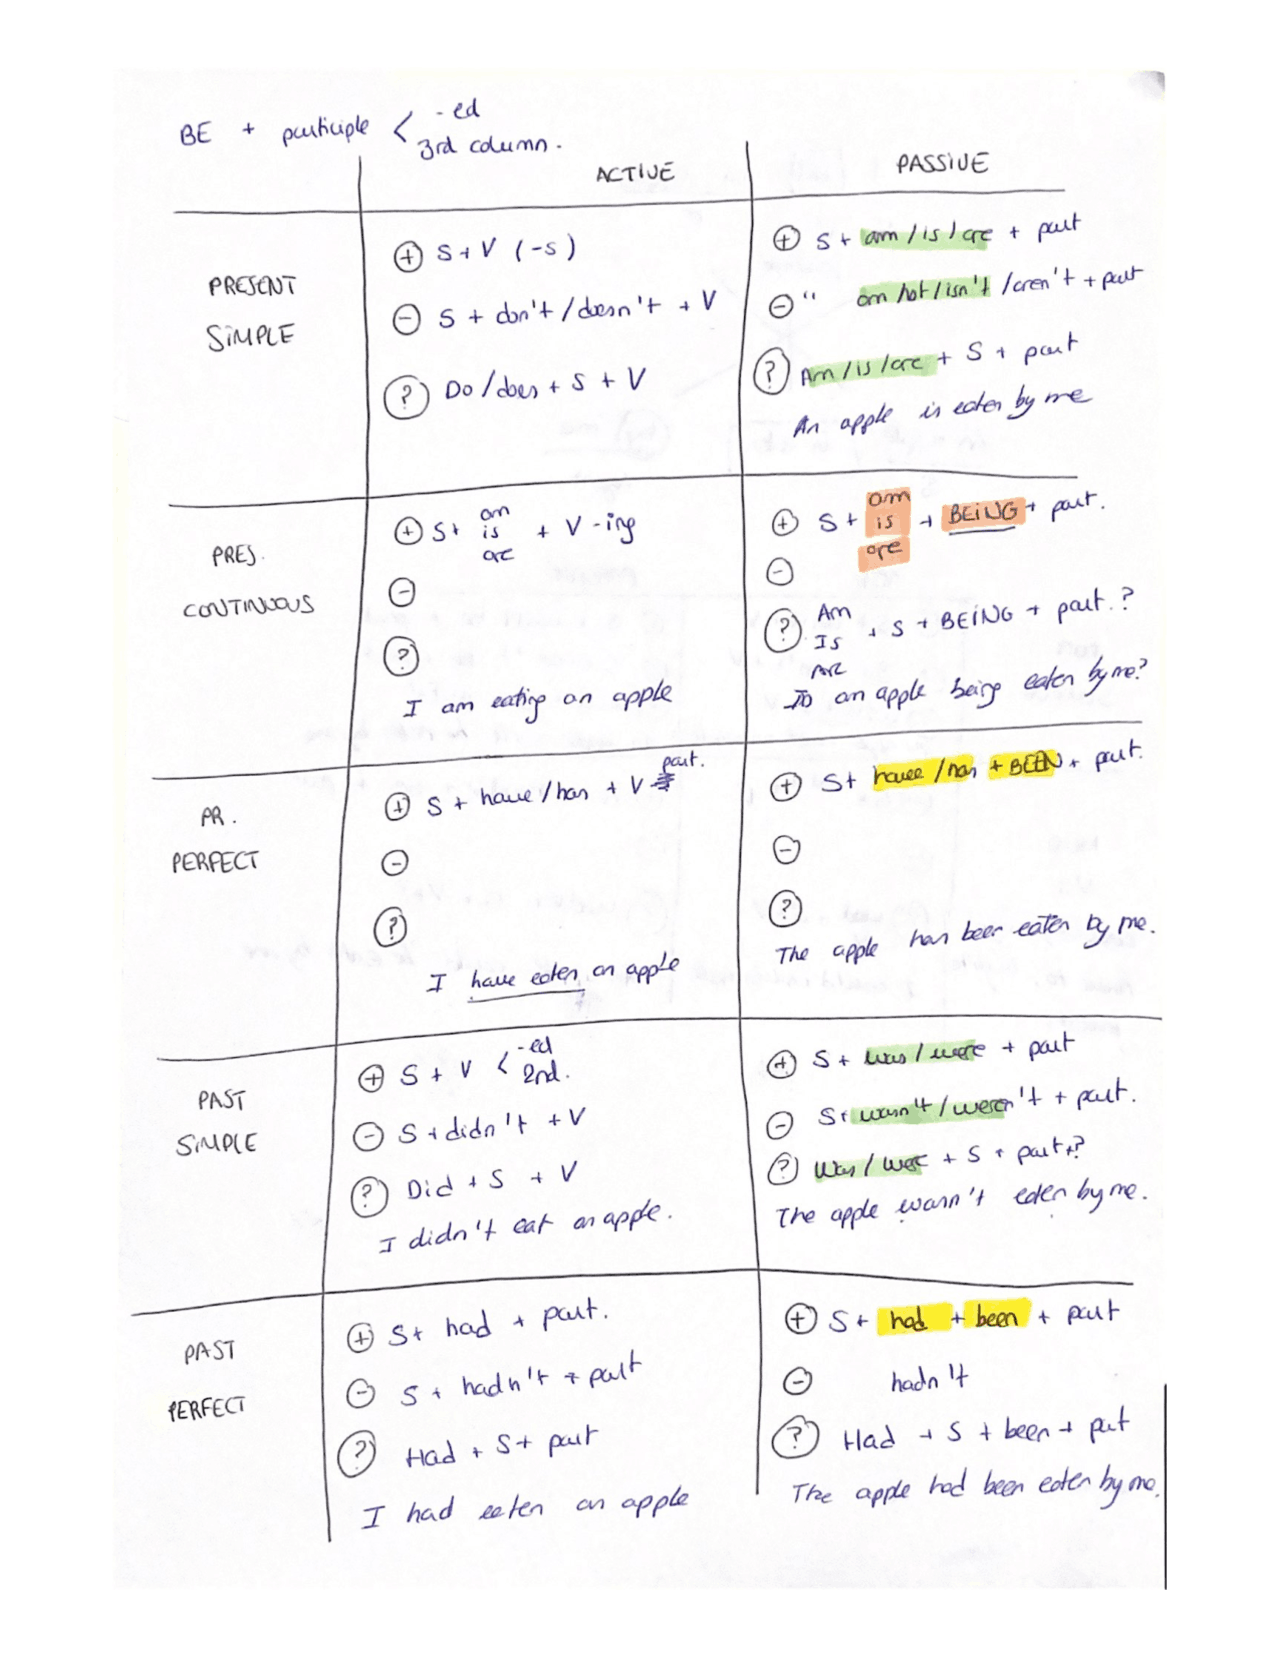 BE + participle < -ed
3rd column.
ACTIVE
PASSIVE
PRESENT
SIMPLE
+ S + V (-s)
- S + don't / doesn't + V
? Do / does + S + V
+ S + am / is / are + part
- " am not / isn't / aren't + part
? Am / is / are + S + part
An apple is eaten by me
PRES.
CONTINUOUS
+ S + am is are + V -ing
-
?
I am eating an apple
+ S + am is are + BEING + part.
-
? Am Is Are + S + BEING + part. ?
Is an apple being eaten by me?
PR.
PERFECT
+ S + have / has + V part.
-
?
I have eaten an apple
+ S + have / has + BEEN + part.
-
?
The apple has been eaten by me.
PAST
SIMPLE
+ S + V < -ed 2nd.
- S + didn't + V
? Did + S + V
I didn't eat an apple.
+ S + was / were + part
- S + wasn't / weren't + part.
? Was / were + S + part + ?
The apple wasn't eaten by me.
PAST
PERFECT
+ S + had + part.
- S + hadn't + part
? Had + S + part
I had eaten an apple
+ S + had + been + part
- hadn't
? Had + S + been + part
The apple had been eaten by me.